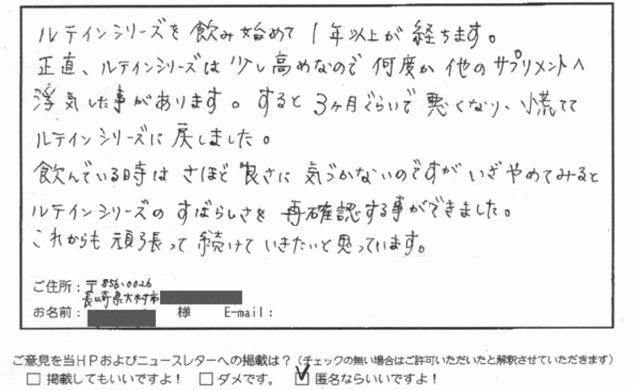 ルテインシリーズを飲み始めて1年以上が経ちます。
正直、ルテインシリーズは少し高めなので何度か他のサプリメントへ
浮気した事があります。すると3ヶ月ぐらいで悪くなり、慌てて
ルテインシリーズに戻しました。
飲んでいる時はさほど良さに気づかないのですがいざやめてみると
ルテインシリーズのすばらしさを再確認する事ができました。
これからも頑張って続けていきたいと思っています。
ご住所：〒856-0026
長崎県大村市
お名前： 様 E-mail：
ご意見を当HPおよびニュースレターへの掲載は？（チェックの無い場合はご許可いただいたと解釈させていただきます）
□ 掲載してもいいですよ！ □ ダメです。 ☑ 匿名ならいいですよ！